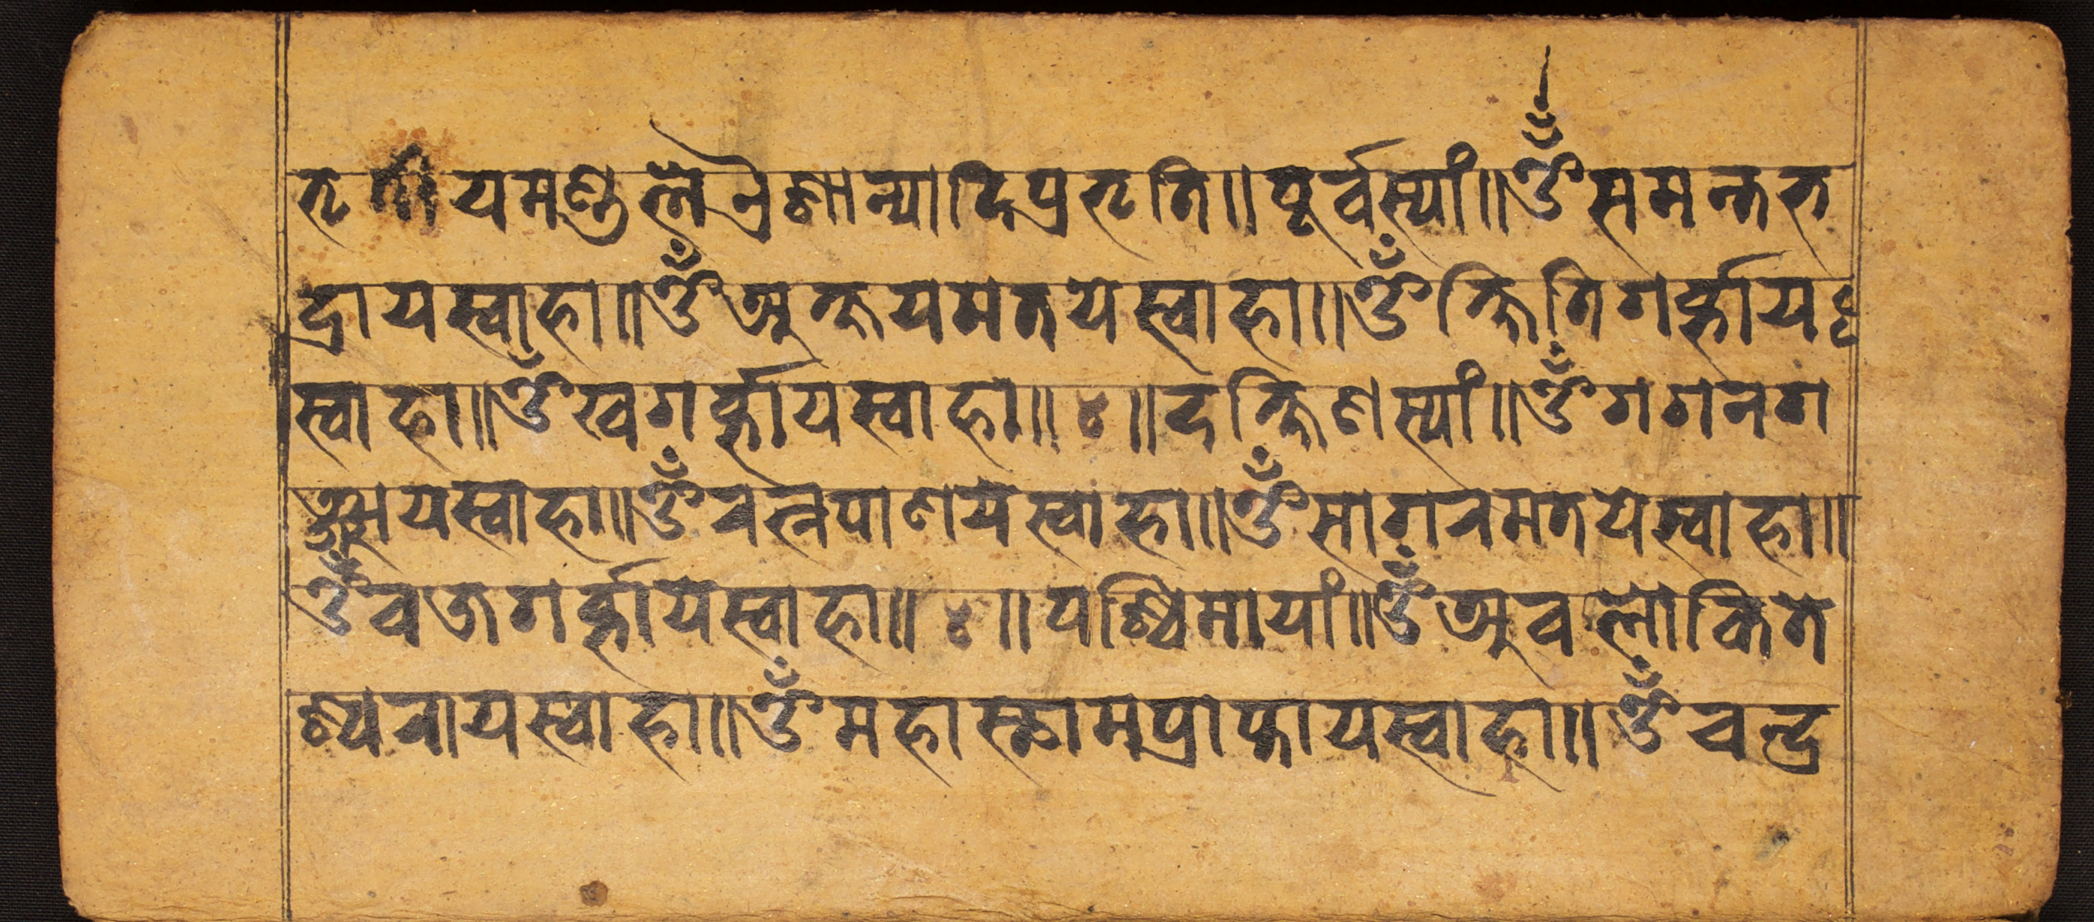 तृतीयमण्डले नैशान्यादिप्रभृति॥ पूर्वस्यां॥ ॐ समन्तभ
द्राय स्वाहा॥ ॐ अक्षयमतये स्वाहा॥ ॐ क्षितिगर्ब्भाय
स्वाहा॥ ॐ खगर्ब्भाय स्वाहा॥ ४॥ दक्षिणस्यां॥ ॐ गगनग
ञ्जाय स्वाहा॥ ॐ रत्नपाणये स्वाहा॥ ॐ सागरमतये स्वाहा॥
ॐ वज्रगर्ब्भाये स्वाहा॥ ४॥ पश्चिमायां॥ ॐ अवलोकिते
श्वराय स्वाहा॥ ॐ महास्थामप्राप्ताय स्वाहा॥ ॐ चन्द्र